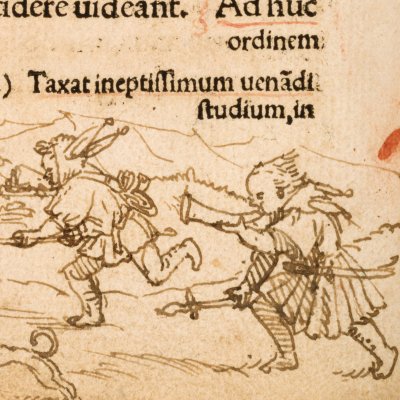 idere uideant. Ad huc
ordinem
) Taxat ineptissimum uenādi
studium, in